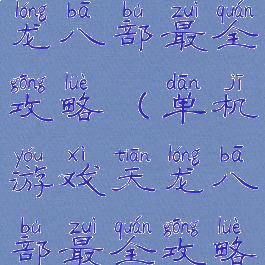 lóng bā bù zuì quán
龙八部最全
gōng lüè dān jī
攻略(单机
yóu xì tiān lóng bā
游戏天龙八
bù zuì quán gōng lüè
部最全攻略